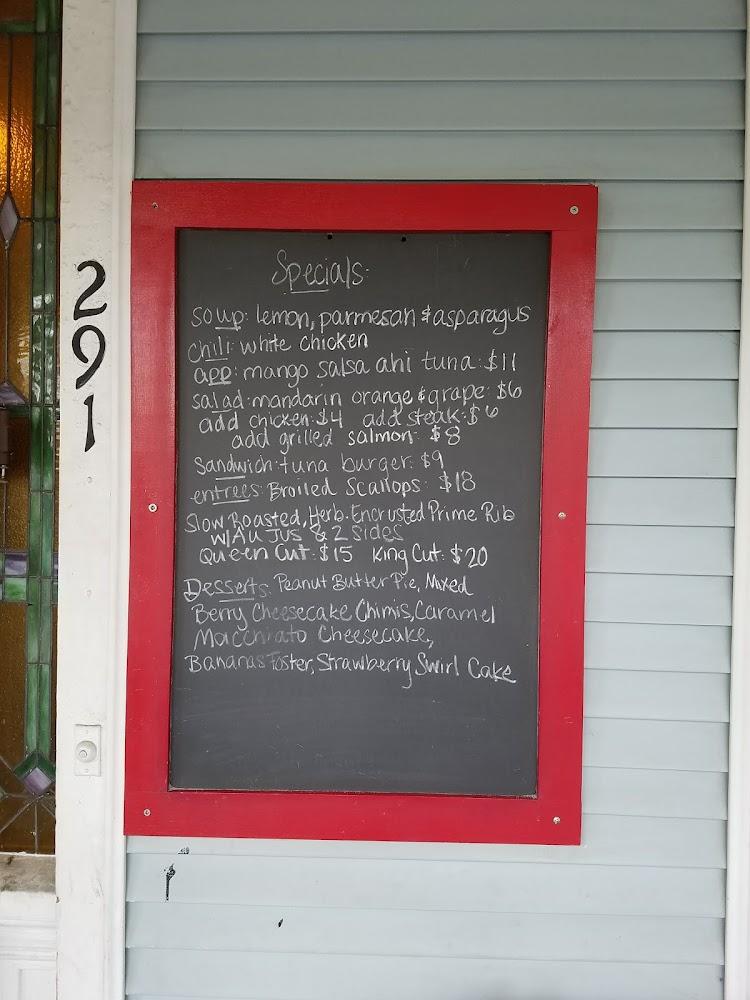 291
Specials:
soup: lemon, parmesan & asparagus
chili: white chicken
app: mango salsa ahi tuna: $11
salad: mandarin orange & grape: $6
add chicken: $4 add steak: $6
add grilled salmon: $8
Sandwich: tuna burger: $9
entrees: Broiled Scallops: $18
Slow Roasted, Herb-Encrusted Prime Rib
W/Au Jus & 2 sides
Queen Cut: $15 King Cut: $20
Desserts: Peanut Butter Pie, Mixed
Berry Cheesecake Chimis, Caramel
Macchiato Cheesecake,
Bananas Foster, Strawberry Swirl Cake